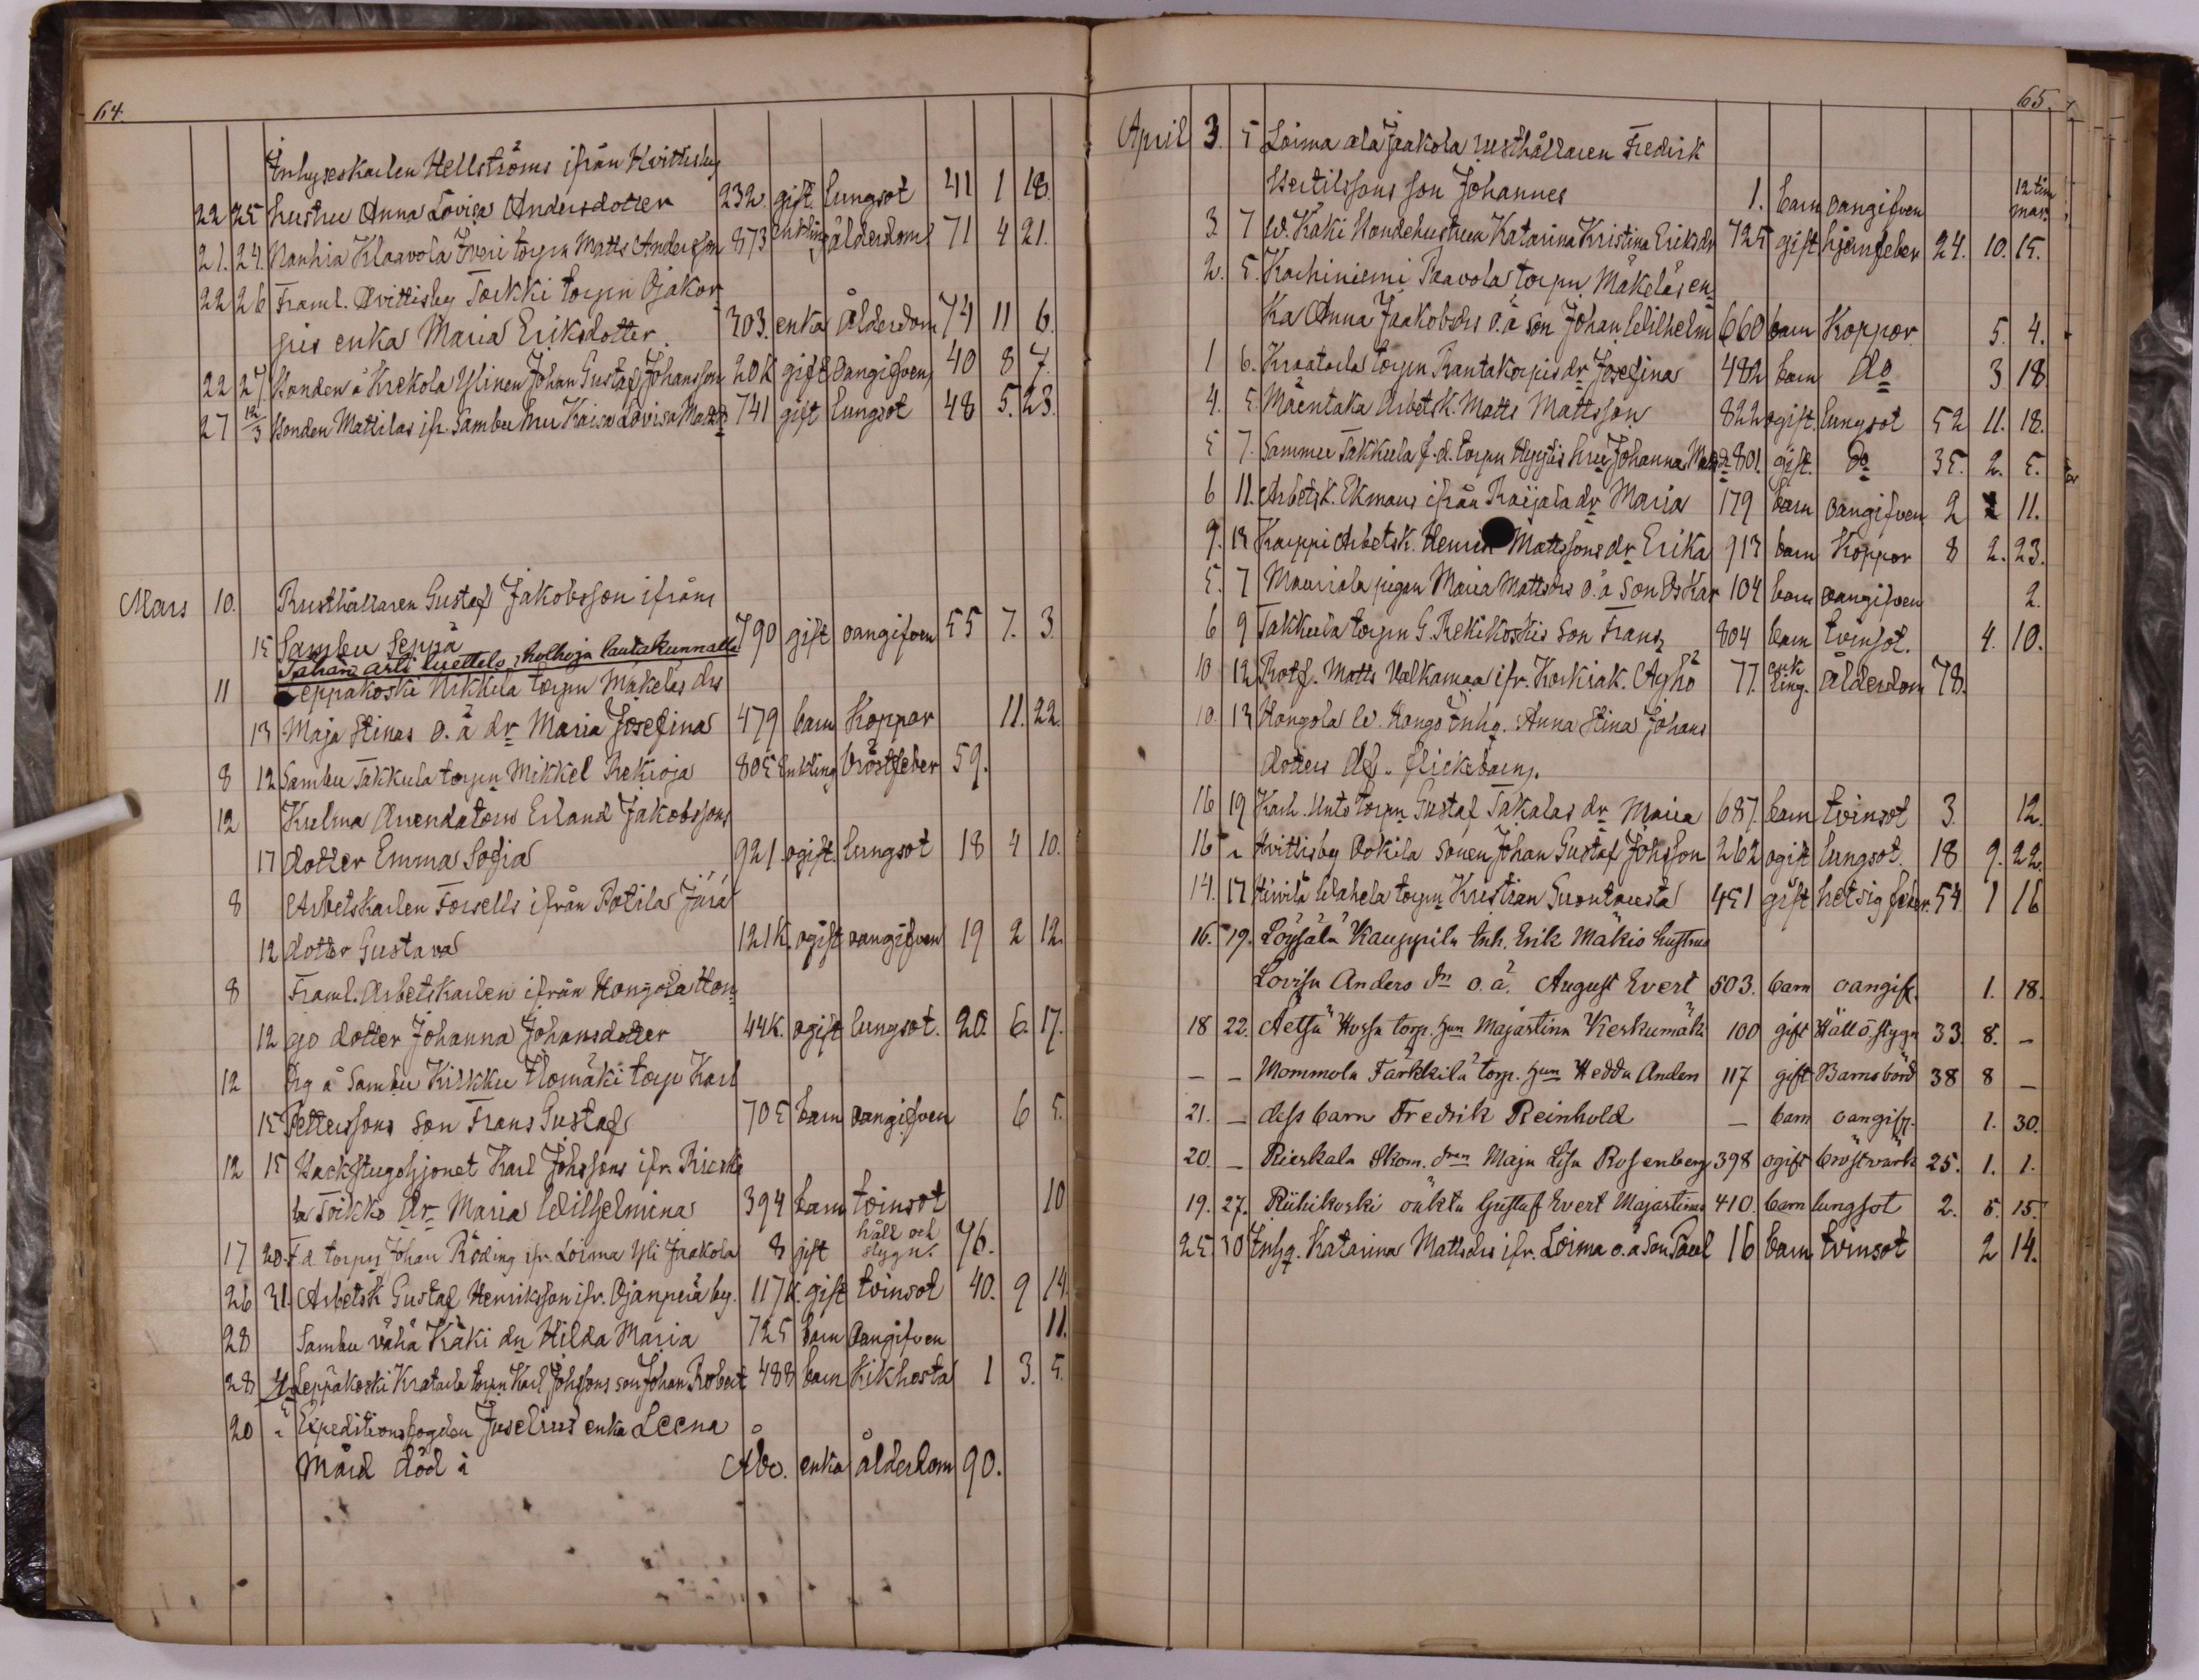 64.
Inhyseskarlen Hellströms ifrån Hvittisby
22 25 hustru Anna Lovisa Andersdotter 232. gift. lungsot 41 1 18.
21. 24. Nanhia Klaavola Iveri torpn Matts Andersson 873 enkling ålderdoms 71 4 21.
22 26 Framl. Hvittisby Torkki torpn Ojakor
pis enka Maria Eriksdotter. 303. enka ålderdom 74 11 6.
22 27 Bonden å Krekola Ylinen Johan Gustaf Johansson 20K gift oangifven 40 8 7.
27 12/3 Bonden Mattilas ifr. Sambu hu Kaisa Lovisa Mattsdr 741 gift lungsot 48 5. 23.
Mars 10. Rusthållaren Gustaf Jakobsson ifrån
15 Sambu Seppä 790 gift oangifven 55 7. 3.
Tähän asti luettelo holhoja lautakunnalle
11 Leppäkoski Nikkila torpn Mäkeläs drs
13 Maja Stinas o. ä dr Maria Josefina 479 barn Koppor 11. 22.
8 12 Sambu Takkula torpn Mikkel Rekioja 805 Enkling bröstfeber 59.
12 Kulma Arendatorns Erland Jakobssons
17 dotter Emma Sofia 921. ogift. lungsot 18 4 10.
8 Arbetskarlen Forsells ifrån Potila Järä
12 dotter Gustava 121K. ogift oangifven 19 2 12.
8 Framl. Arbetskarlen ifrån Hongola Hon
12 go dotter Johanna Johansdotter 44K. ogift lungsot. 20. 6. 17.
12 Drg å Sambu Kirkku Ilomäki torp Karl
15 Petterssons son Frans Gustaf 705 barn oangifven 6 5.
12 15 Backstugohjonet Karl Johssons ifr. Rieska
la Toikko dr Maria Wilhelmina 394 barn tvinsot 10
17 20. F.d. torpn Johan Röding ifr. Loima Yli Jaakola 8 gift håll och stygn. 76.
26 31. Arbetsk Gustaf Henriksson ifr. Ojanperä by. 117K. gift tvinsot 40. 9 14.
28 Sambu vähä Käki dn Hilda Maria 725 barn oangifven 11.
28 4 Leppäkoski Kratarla torpn Karl Johssons son Johan Robert 488 barn Kikhosta 1 3. 5.
20 Expeditionsfogden Juselius enka Leena
Mård död i Åbo. enka ålderdom 90.
65.
April 3. 5 Loima ala Jaakola rusthållaren Fredrik
Bertilssons son Johannes 1. barn oangifven 12 tim mar.
3 7 W. Käki Bondehustrun Katarina Kristina Eriksdr 725 gift hjernfeber 24. 10. 15.
2. 5. Karhiniemi Paavola torpn Mäkeläs en
ka Anna Jaakobsdrs o. ä son Johan Wilhelm 660 barn Koppor 5. 4.
1 6. Kraatarla torpn Rantakorpis dr Josefina 482 barn do 3 18
4. 5. Mäentaka Arbetsk. Matts Mattsson 822 ogift. lungsot 52 11. 18.
5 7. Sammu Takkula f. d. torpn Hyytis hru Johanna Mattsd 801. gift. do 35. 2. 5.
6 11. Arbetsk. Ekmans ifrån Raijala dr Maria 179 barn oangifven 2 11.
9. 13 Karppi Arbetsk. Henrik Mattssons dr Erika 913 barn Koppor 8 2. 23.
5. 7 Mauriala pigan Maria Mattsdrs o. ä son Oskar 104 barn oangifven 2.
6 9 Takkula torpn G. Rekikoskis son Frans 804 barn tvinsot. 4. 10.
10 12 Rotf. Matts Valkamaa ifr. Korkiak. Ayhö 77. enkling. ålderdom 78.
10. 13 Hongola W. Hongo Inhg. Anna Stina Johans
dotters df. flickebarn.
16 19 Karh. Unto torpn Gustaf Takalas dr Maria 687. barn tvinsot 3. 12.
16 " Hvittisby Dokila sonen Johan Gustaf Johsson 262 ogift lungsot. 18 9. 22.
14. 17 Hiivilä Wahela torpn Kristian Suontausta 451 gift hetsig feber. 54 1 16
16. 19. Löysälä Kauppila Inh. Erik Mäkis hustrus
Lovisa Anders dr o. ä. August Evert 503. barn oangif. 1. 18.
18 22. Aetsä Hossa torp. hun Majastina Keskumäki 100 gift Håll o. stygn 33. 8. –
– – Mommola Färkkilä torp. hun Hedda Anders 117 gift Barnsbörd 38 8 –
21. – dess barn Fredrik Reinhold – barn oangifv. 1. 30.
20. – Rieskala Skom. dran Maja Lisa Rosenberg 398 ogift bröstvärk 25. 1. 1.
19. 27. Riihikoski oäkta Gustaf Evert Majastinas 410. barn lungsot 2. 5. 15.
25 30 Inhg. Katarina Mattsdrs ifr. Loima o. ä son Paul 16 barn tvinsot 2 14.